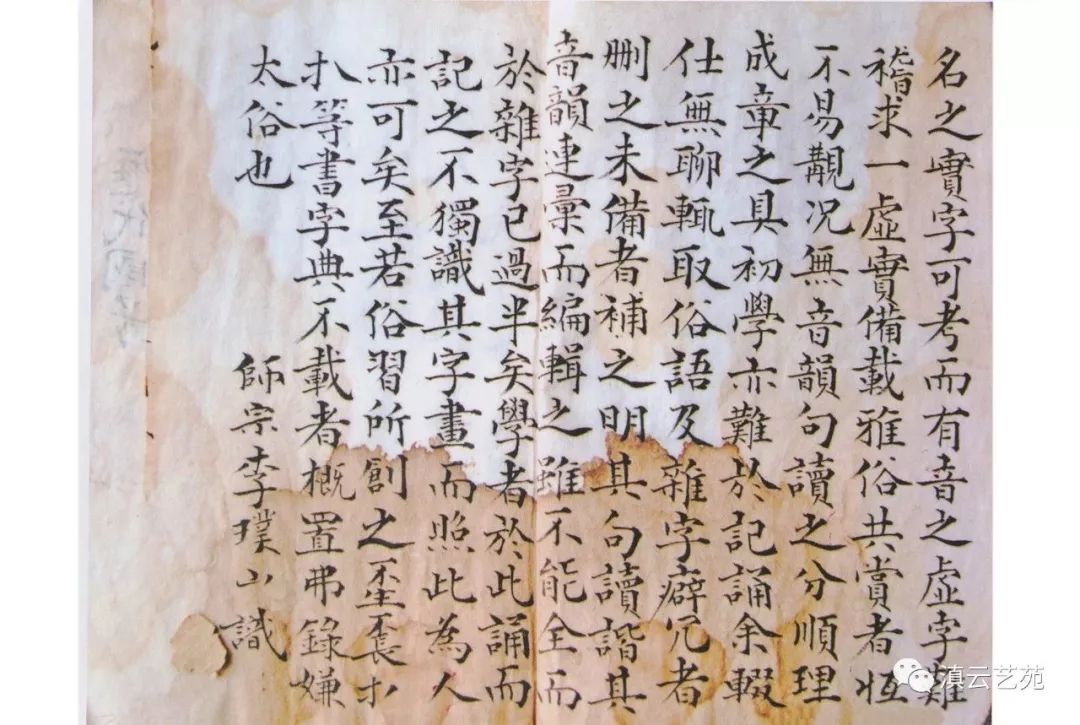 名之實字可考而有音之虛字難
稽求一虛實備載雅俗共賞者恆
不易覯况無音韻句讀之分順理
成章之具初學亦難於記誦余輟
仕無聊輒取俗語及雜字癖冗者
删之未備者補之明其句讀諧其
音韻連彙而編輯之雖不能全而
於雜字已過半矣學者於此誦而
記之不獨識其字畫而照此為人
亦可矣至若俗習所創之𠀾𠀾才
扒等書字典不載者概置弗錄嫌
太俗也
師宗李璞山識
滇云艺苑